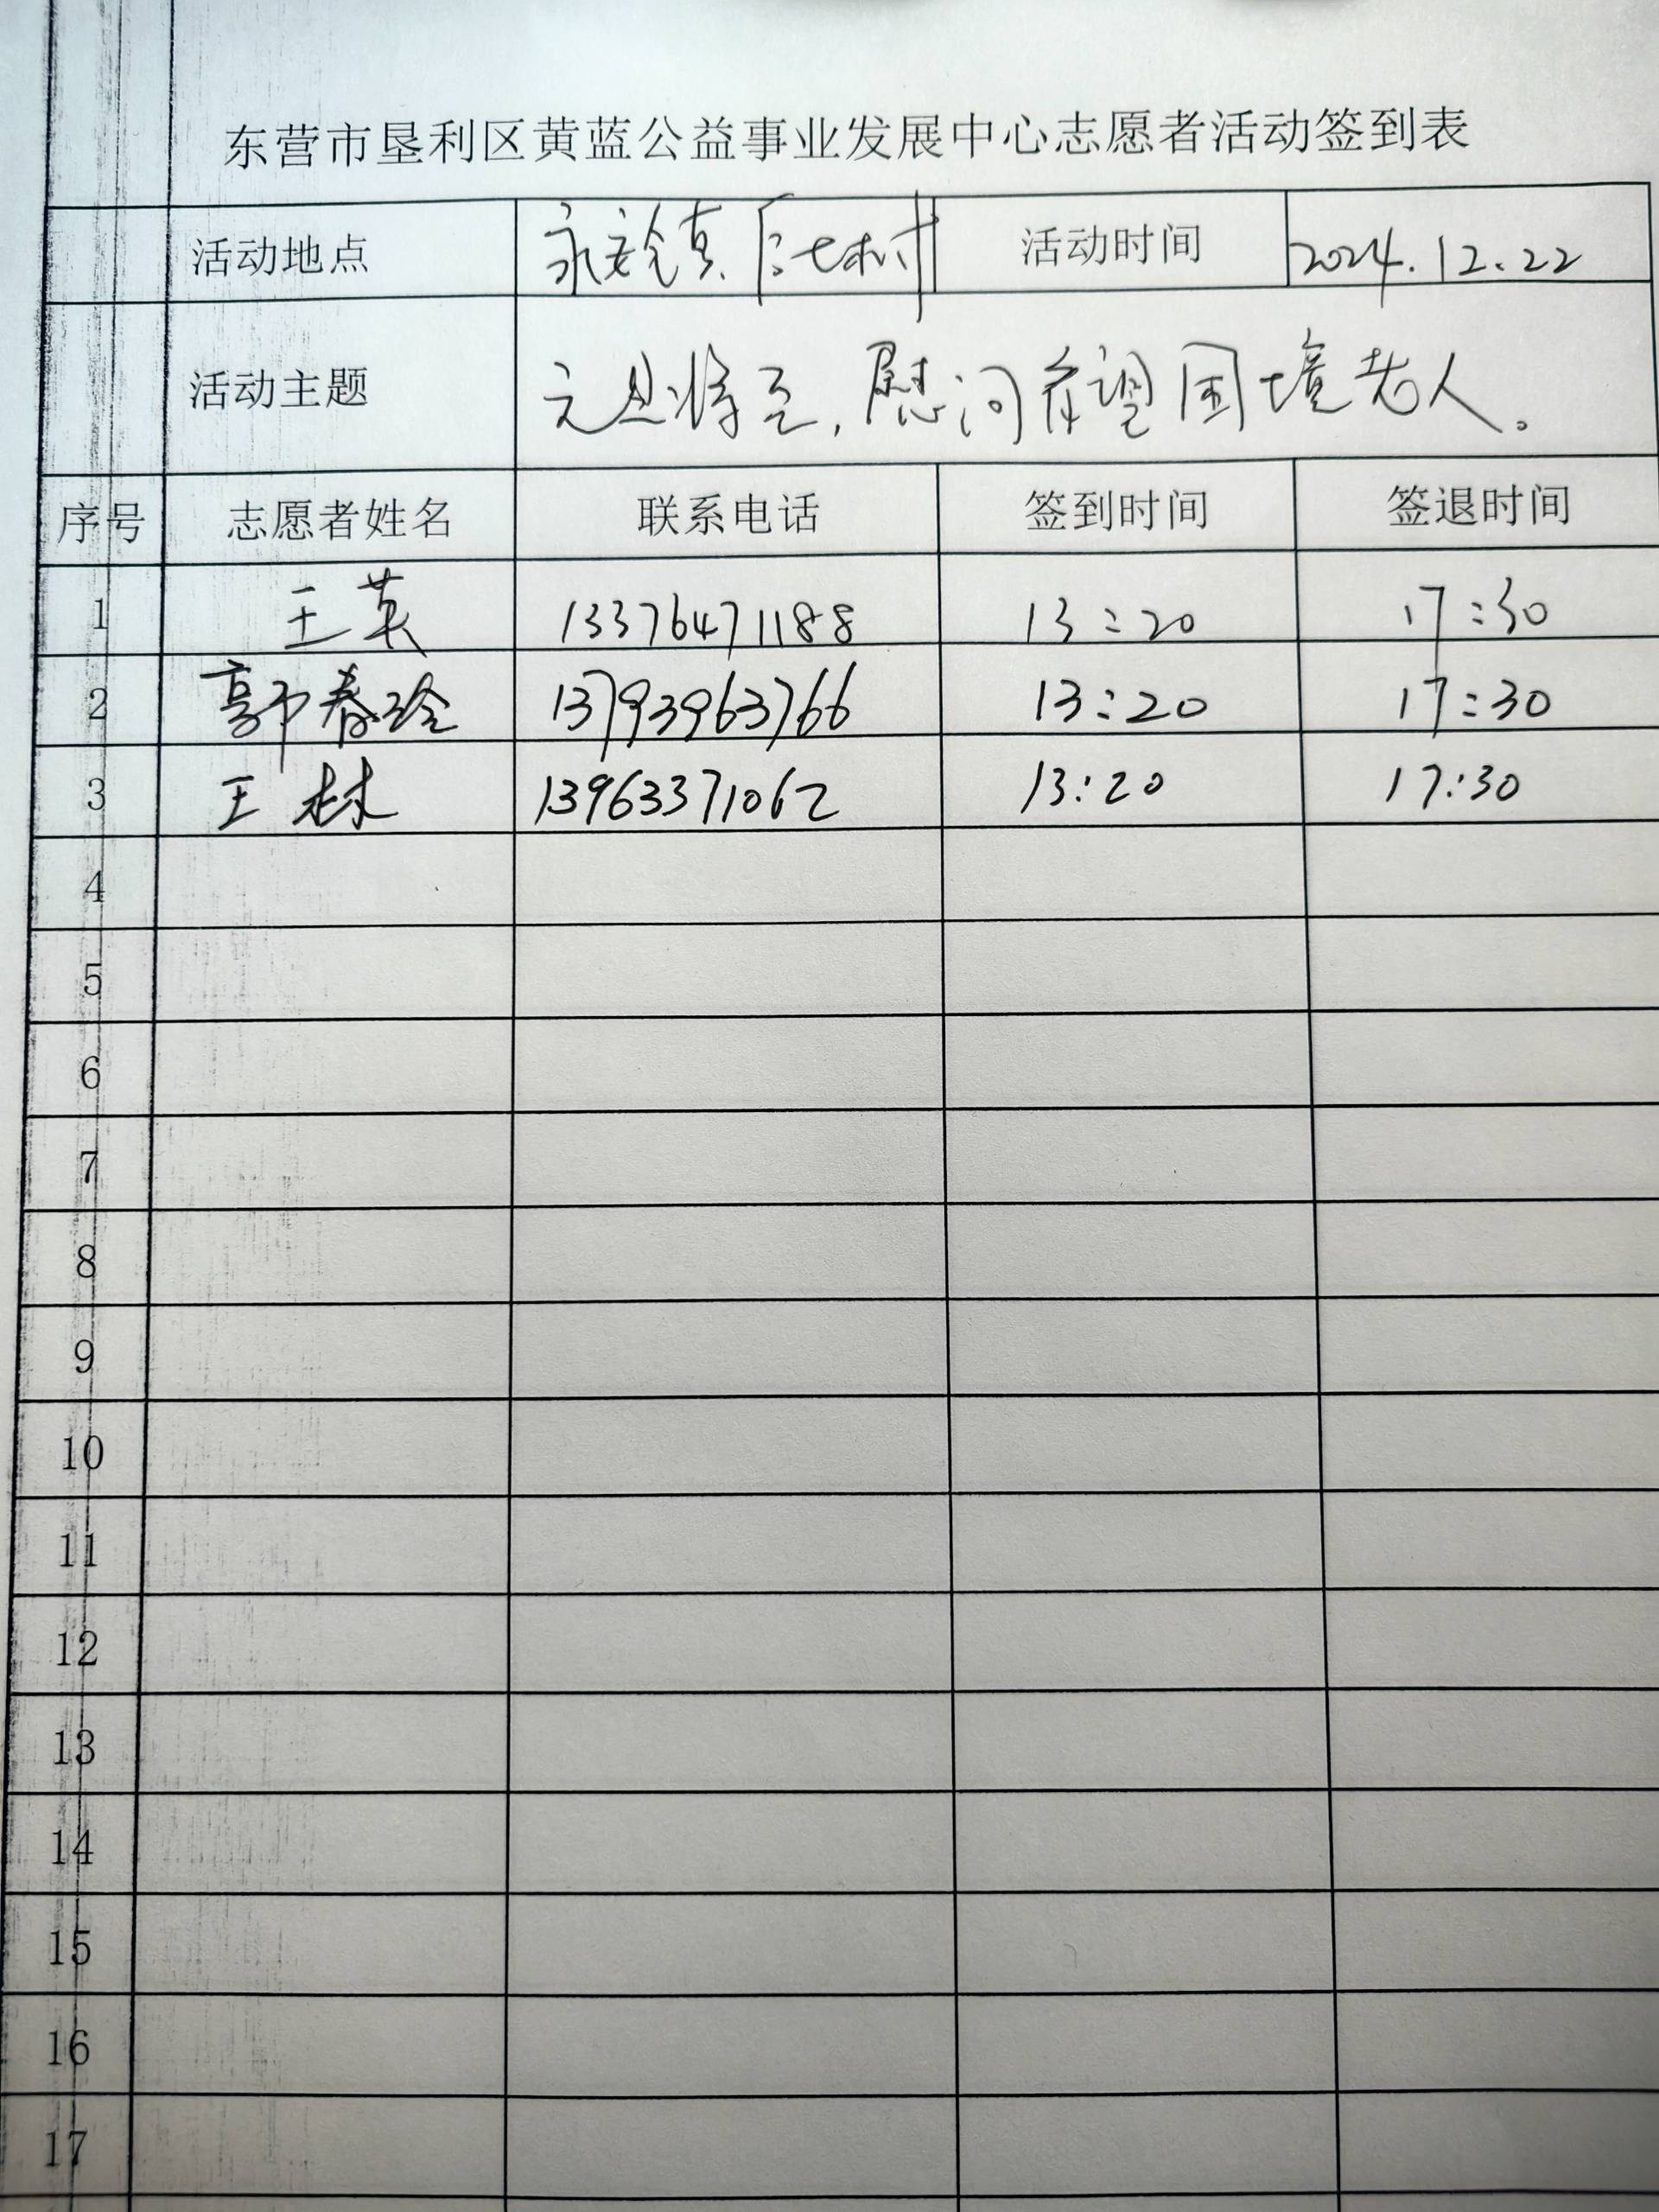 东营市垦利区黄蓝公益事业发展中心志愿者活动签到表
活动地点 永安镇 七村 活动时间 2024.12.22
活动主题 元旦将至,慰问希望困境老人。
序号 志愿者姓名 联系电话 签到时间 签退时间
1 王英 13376471188 13:20 17:30
2 郭春玲 13793963766 13:20 17:30
3 王林 13963371062 13:20 17:30
4
5
6
7
8
9
10
11
12
13
14
15
16
17